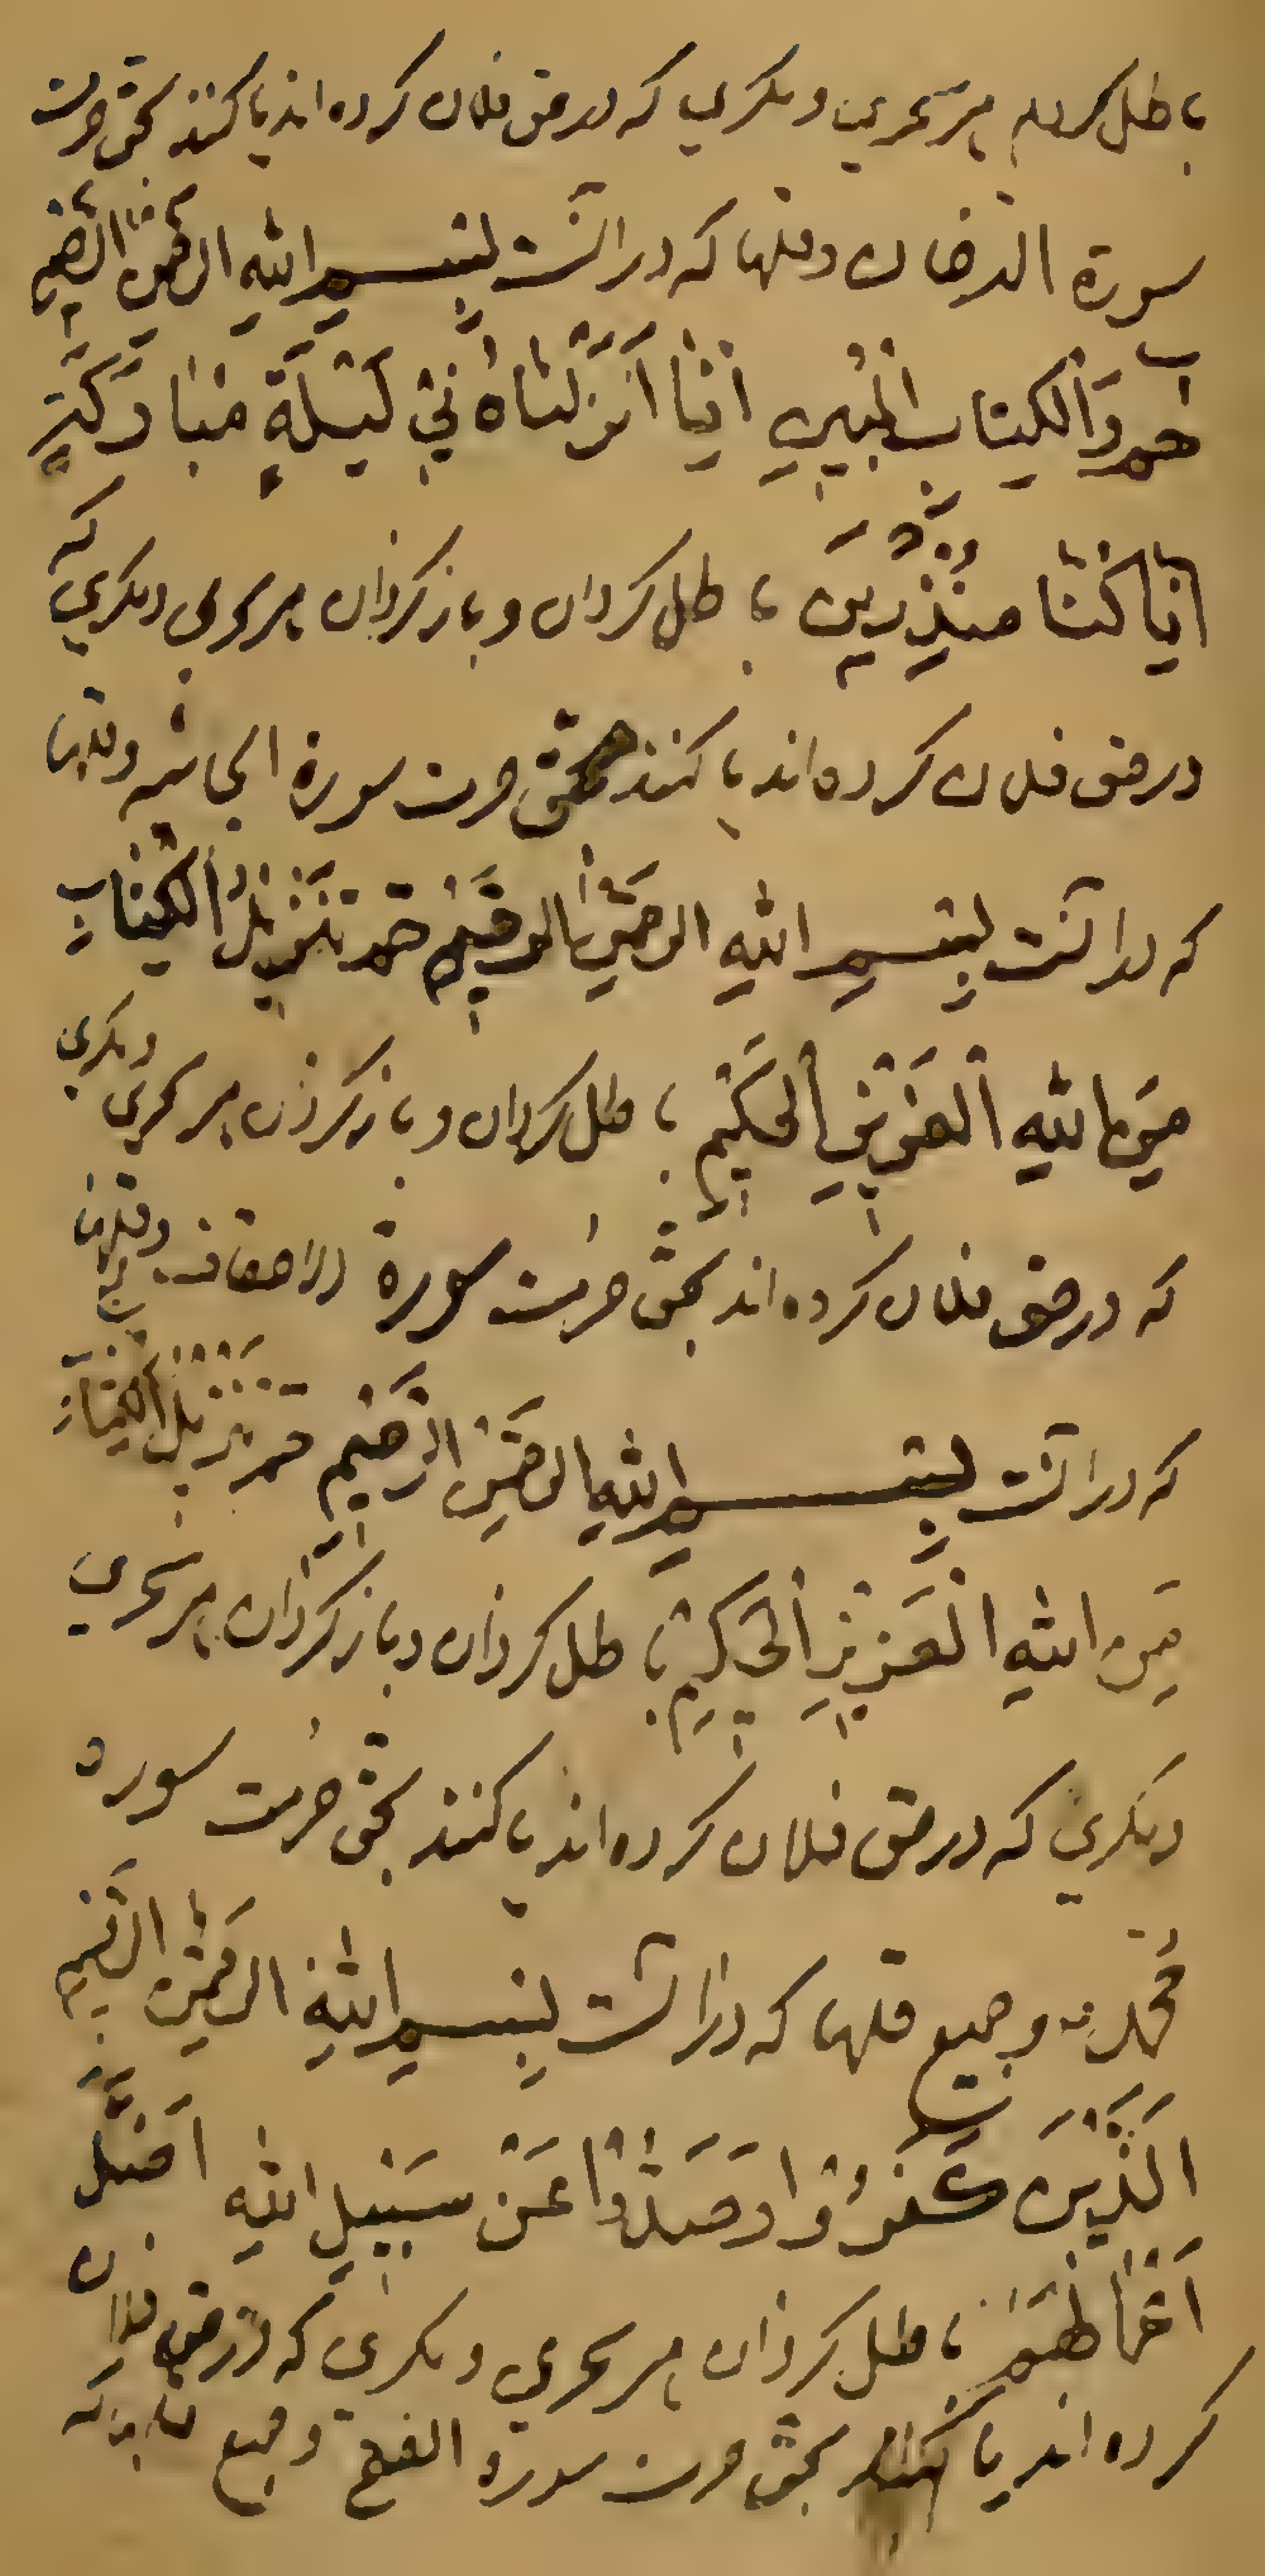 باطل کردم هر سحری و مکری که در حق فلان کرده اند یا کنند بحق حرمت
سورة الدخان وقلها که در انست بِسْمِ اللهِ الرَّحْمٰنِ الرَّحِيمِ
حم وَالْكِتَابِ الْمُبِينِ اِنَّا اَنْزَلْنَاهُ فِي لَيْلَةٍ مُبَارَكَةٍ
اِنَّا كُنَّا مُنْذِرِينَ باطل کردان و باز کردان هر سحری و مکری که
در حق فلان کرده اند یا کنند بحق حرمت سورة الجاثیه وقلها
که در انست بِسْمِ اللهِ الرَّحْمٰنِ الرَّحِيمِ حم تَنْزِيلُ الْكِتَابِ
مِنَ اللهِ الْعَزِيزِ الْحَكِيمِ باطل کردان و باز کردان هر سحری و مکری
که در حق فلان کرده اند بحق حرمت سورة الاحقاف وقلها
که در انست بِسْمِ اللهِ الرَّحْمٰنِ الرَّحِيمِ حم تَنْزِيلُ الْكِتَابِ
مِنَ اللهِ الْعَزِيزِ الْحَكِيمِ باطل کردان و باز کردان هر سحری
و مکری که در حق فلان کرده اند یا کنند بحق حرمت سوره
محمد وجمیع قلها که در انست بِسْمِ اللهِ الرَّحْمٰنِ الرَّحِيمِ
اَلَّذِينَ كَفَرُوا وَصَدُّوا عَنْ سَبِيلِ اللهِ اَضَلَّ
اَعْمَالَهُمْ باطل کردان هر سحری و مکری که در حق فلان
کرده اند یا کنند بحق حرمت سورة الفتح وجمیع قلها که